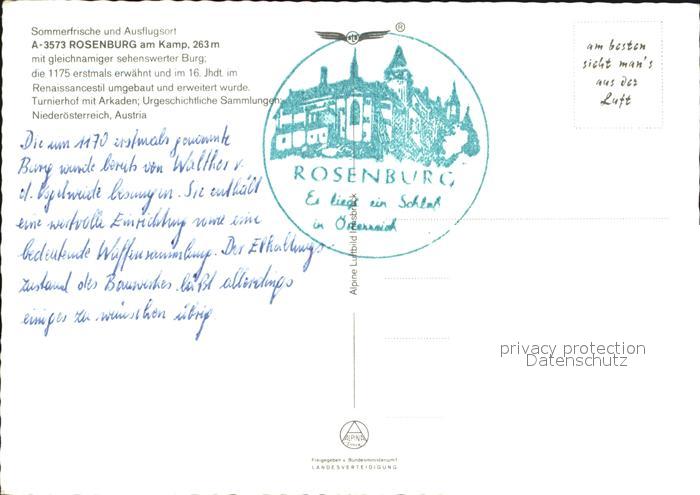 Sommerfrische und Ausflugsort
A-3573 ROSENBURG am Kamp, 263 m
mit gleichnamiger sehenswerter Burg;
die 1175 erstmals erwähnt und im 16. Jhdt. im
Renaissancestil umgebaut und erweitert wurde.
Turnierhof mit Arkaden; Urgeschichtliche Sammlungen
Niederösterreich, Austria
Die um 1170 erstmals genannte
Burg wurde bereits von Walther v.
d. Vogelweide besungen. Sie enthält
eine wertvolle Einrichtung sowie eine
bedeutende Waffensammlung. Der Erhaltungs-
zustand des Bauwerkes läßt allerdings
einiges zu wünschen übrig
®
ROSENBURG
Es liegt ein Schloß
in Österreich
am besten
sieht man's
aus der
Luft
Alpine Luftbild Innsbruck
privacy protection
Datenschutz
ALPINE
Freigegeben v. Bundesministerium f.
LANDESVERTEIDIGUNG